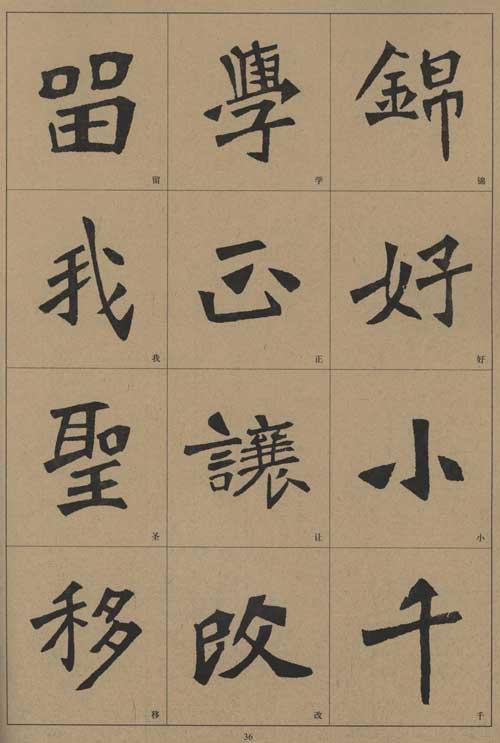 錦
锦
好
好
小
小
千
千
學
学
正
正
讓
让
改
改
留
留
我
我
聖
圣
移
移
36